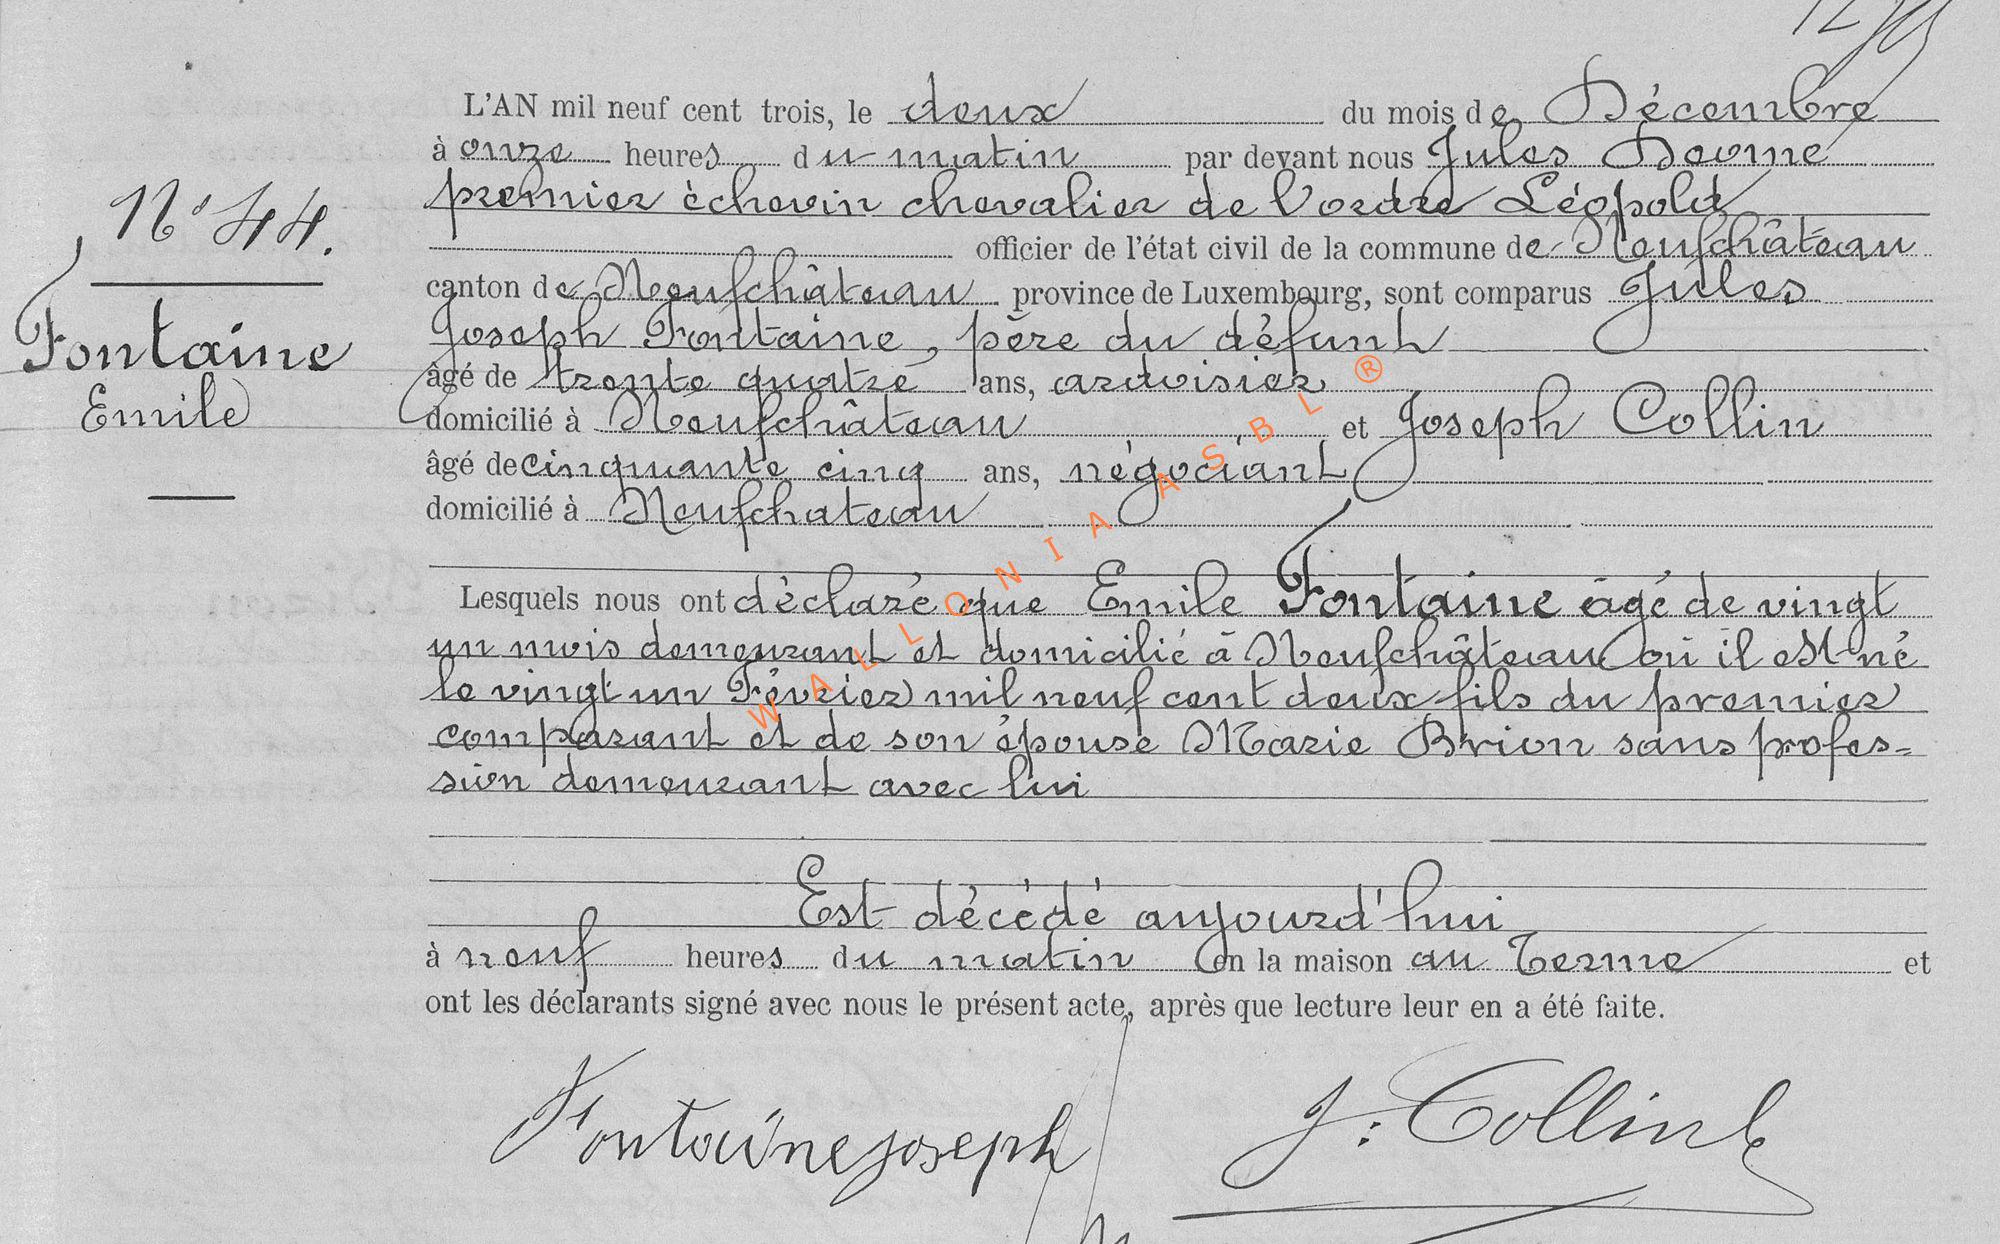 L'AN mil neuf cent trois, le deux du mois de Décembre
à onze heures du matin par devant nous Jules
premier échevin chevalier de l'ordre Léopold
N° 44.
officier de l'état civil de la commune de Neufchâteau
canton de Neufchâteau province de Luxembourg, sont comparus Jules
Joseph Fontaine, père du défunt
Fontaine
Emile
âgé de trente quatre ans, ardoisier
domicilié à Neufchâteau et Joseph Collin
âgé de cinquante cinq ans, négociant
domicilié à Neufchateau
Lesquels nous ont déclaré que Emile Fontaine âgé de vingt
un mois demeurant et domicilié à Neufchâteau où il est né
le vingt un Février mil neuf cent deux fils du premier
comparant et de son épouse Marie Brion sans profes=
sion demeurant avec lui
Est décédé aujourd'hui
à neuf heures du matin en la maison au Terme et
ont les déclarants signé avec nous le présent acte, après que lecture leur en a été faite.
Fontaine joseph J: Collin
WALLONIA ASBL ®